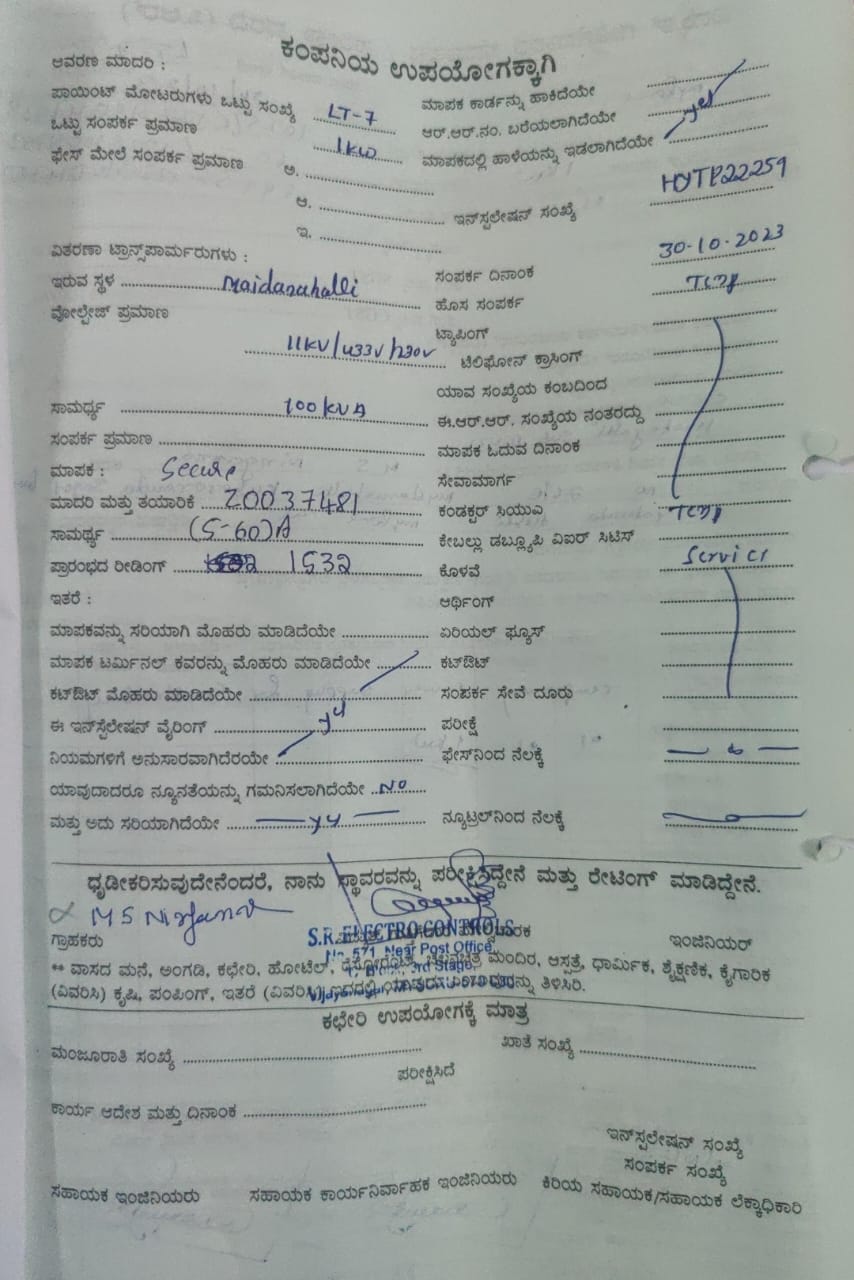 ಕಂಪನಿಯ ಉಪಯೋಗಕ್ಕಾಗಿ
ಆವರಣ ಮಾದರಿ :
ಪಾಯಿಂಟ್ ಮೋಟರುಗಳು ಒಟ್ಟು ಸಂಖ್ಯೆ LT-7 ಮಾಪಕ ಕಾರ್ಡನ್ನು ಹಾಕಿದೆಯೇ
ಒಟ್ಟು ಸಂಪರ್ಕ ಪ್ರಮಾಣ 1KW ಆರ್.ಆರ್.ನಂ. ಬರೆಯಲಾಗಿದೆಯೇ yes
ಫೇಸ್ ಮೇಲೆ ಸಂಪರ್ಕ ಪ್ರಮಾಣ ಅ. ಮಾಪಕದಲ್ಲಿ ಹಾಳೆಯನ್ನು ಇಡಲಾಗಿದೆಯೇ
ಆ. ಇನ್‌ಸ್ಟಲೇಷನ್ ಸಂಖ್ಯೆ HDTP22259
ಇ.
ವಿತರಣಾ ಟ್ರಾನ್ಸ್‌ಫಾರ್ಮರುಗಳು :
ಇರುವ ಸ್ಥಳ Maidanahalli ಸಂಪರ್ಕ ದಿನಾಂಕ 30-10-2023
ವೋಲ್ಟೇಜ್ ಪ್ರಮಾಣ ಹೊಸ ಸಂಪರ್ಕ
ಟ್ಯಾಪಿಂಗ್
11KV/433V/230V ಟೆಲಿಫೋನ್ ಕ್ರಾಸಿಂಗ್
ಯಾವ ಸಂಖ್ಯೆಯ ಕಂಬದಿಂದ
ಸಾಮರ್ಥ್ಯ 100KVA ಈ.ಆರ್.ಆರ್. ಸಂಖ್ಯೆಯ ನಂತರದ್ದು
ಸಂಪರ್ಕ ಪ್ರಮಾಣ ಮಾಪಕ ಓದುವ ದಿನಾಂಕ
ಮಾಪಕ : Secure ಸೇವಾಮಾರ್ಗ
ಮಾದರಿ ಮತ್ತು ತಯಾರಿಕೆ 20037481 ಕಂಡಕ್ಟರ್ ಸಿಯುಎ
ಸಾಮರ್ಥ್ಯ (5-60)A ಕೇಬಲ್ಲು ಡಬ್ಲ್ಯೂಪಿ ವಿಐರ್ ಸಿಟಿಸ್
ಪ್ರಾರಂಭದ ರೀಡಿಂಗ್ 1532 ಕೊಳವೆ Service
ಇತರೆ : ಆರ್ಥಿಂಗ್
ಮಾಪಕವನ್ನು ಸರಿಯಾಗಿ ಮೊಹರು ಮಾಡಿದೆಯೇ ಏರಿಯಲ್ ಫ್ಯೂಸ್
ಮಾಪಕ ಟರ್ಮಿನಲ್ ಕವರನ್ನು ಮೊಹರು ಮಾಡಿದೆಯೇ ಕಟ್‌ಔಟ್
ಕಟ್‌ಔಟ್ ಮೊಹರು ಮಾಡಿದೆಯೇ ಸಂಪರ್ಕ ಸೇವೆ ದೂರು
ಈ ಇನ್‌ಸ್ಟಲೇಷನ್ ವೈರಿಂಗ್ ಪರೀಕ್ಷೆ
ನಿಯಮಗಳಿಗೆ ಅನುಸಾರವಾಗಿದೆರಯೇ ಫೇಸ್‌ನಿಂದ ನೆಲಕ್ಕೆ
ಯಾವುದಾದರೂ ನ್ಯೂನತೆಯನ್ನು ಗಮನಿಸಲಾಗಿದೆಯೇ NO
ಮತ್ತು ಅದು ಸರಿಯಾಗಿದೆಯೇ ನ್ಯೂಟ್ರಲ್‌ನಿಂದ ನೆಲಕ್ಕೆ
ಧೃಡೀಕರಿಸುವುದೇನೆಂದರೆ, ನಾನು ಸ್ಥಾವರವನ್ನು ಪರೀಕ್ಷಿಸಿದ್ದೇನೆ ಮತ್ತು ರೇಟಿಂಗ್ ಮಾಡಿದ್ದೇನೆ.
S.R. ELECTRO CONTROLS
ಗ್ರಾಹಕರು ಇಂಜಿನಿಯರ್
No. 571, Near Post Office,
** ವಾಸದ ಮನೆ, ಅಂಗಡಿ, ಕಛೇರಿ, ಹೋಟೆಲ್, ಮಂದಿರ, ಆಸ್ಪತ್ರೆ, ಧಾರ್ಮಿಕ, ಶೈಕ್ಷಣಿಕ, ಕೈಗಾರಿಕ
3rd Stage,
(ವಿವರಿಸಿ) ಕೃಷಿ, ಪಂಪಿಂಗ್, ಇತರೆ (ವಿವರಿಸಿ) ತಿಳಿಸಿರಿ.
ಕಛೇರಿ ಉಪಯೋಗಕ್ಕೆ ಮಾತ್ರ
ಮಂಜೂರಾತಿ ಸಂಖ್ಯೆ ಖಾತೆ ಸಂಖ್ಯೆ
ಪರೀಕ್ಷಿಸಿದೆ
ಕಾರ್ಯ ಆದೇಶ ಮತ್ತು ದಿನಾಂಕ
ಇನ್‌ಸ್ಟಲೇಷನ್ ಸಂಖ್ಯೆ
ಸಂಪರ್ಕ ಸಂಖ್ಯೆ
ಸಹಾಯಕ ಇಂಜಿನಿಯರು ಸಹಾಯಕ ಕಾರ್ಯನಿರ್ವಾಹಕ ಇಂಜಿನಿಯರು ಕಿರಿಯ ಸಹಾಯಕ/ಸಹಾಯಕ ಲೆಕ್ಕಾಧಿಕಾರಿ